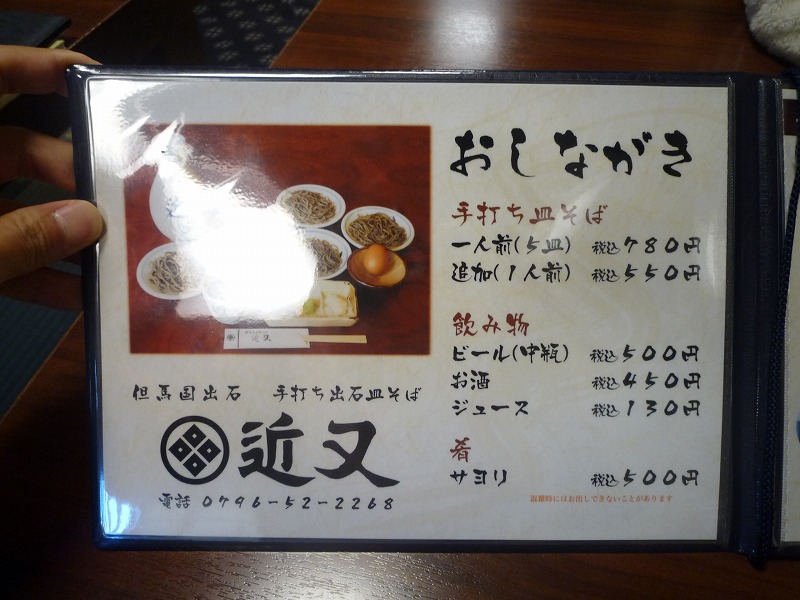 おしながき
手打ち皿そば
一人前(5皿) 税込780円
追加(1人前) 税込550円
飲み物
ビール(中瓶) 税込500円
お酒 税込450円
ジュース 税込130円
肴
サヨリ 税込500円
混雑時にはお出しできないことがあります
近又
但馬国出石 手打ち出石皿そば
近又
電話 0796-52-2268